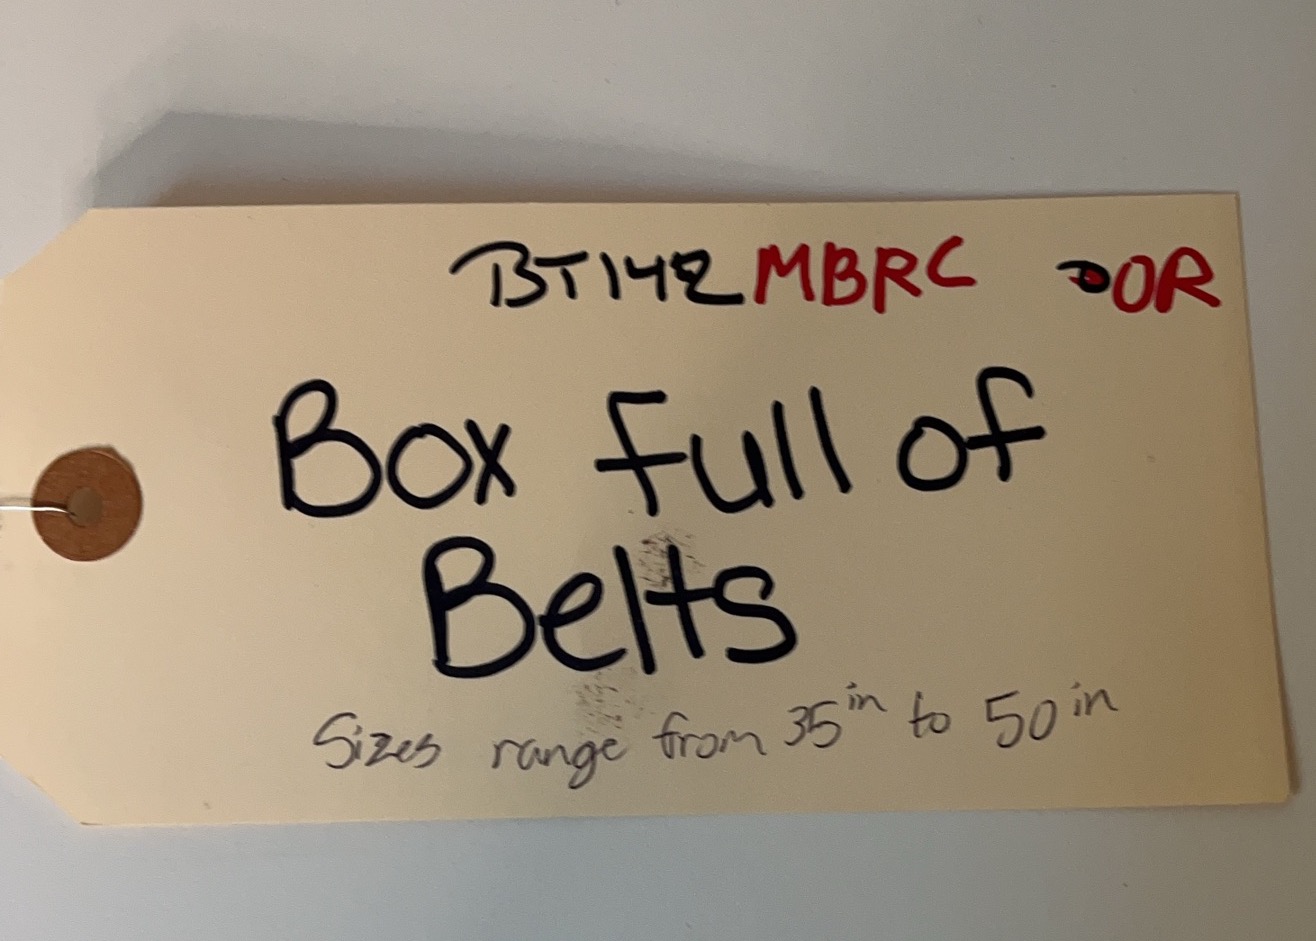 BT142 MBRC OR
Box full of
Belts
Sizes range from 35in to 50in